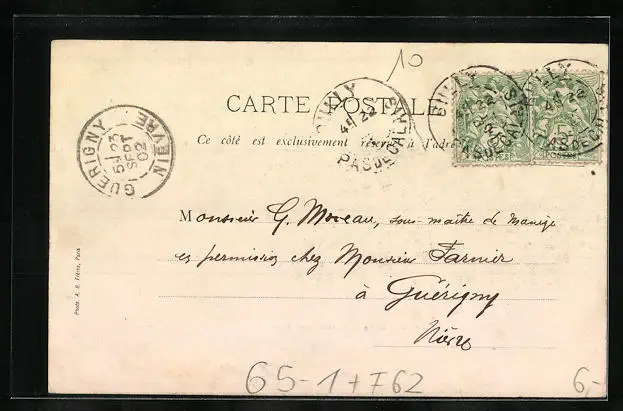 10
CARTE POSTALE
Ce côté est exclusivement réservé à l'adre
Monsieur G. Moreau, sous-maître de manège
en permission chez Monsieur Farnier
à Guérigny
Nièvre
GUERIGNY
5 23
SEPT
02
NIEVRE
22
PAS DE CALAIS
Photo A. B. Frères, Paris
65-1+762
6,-